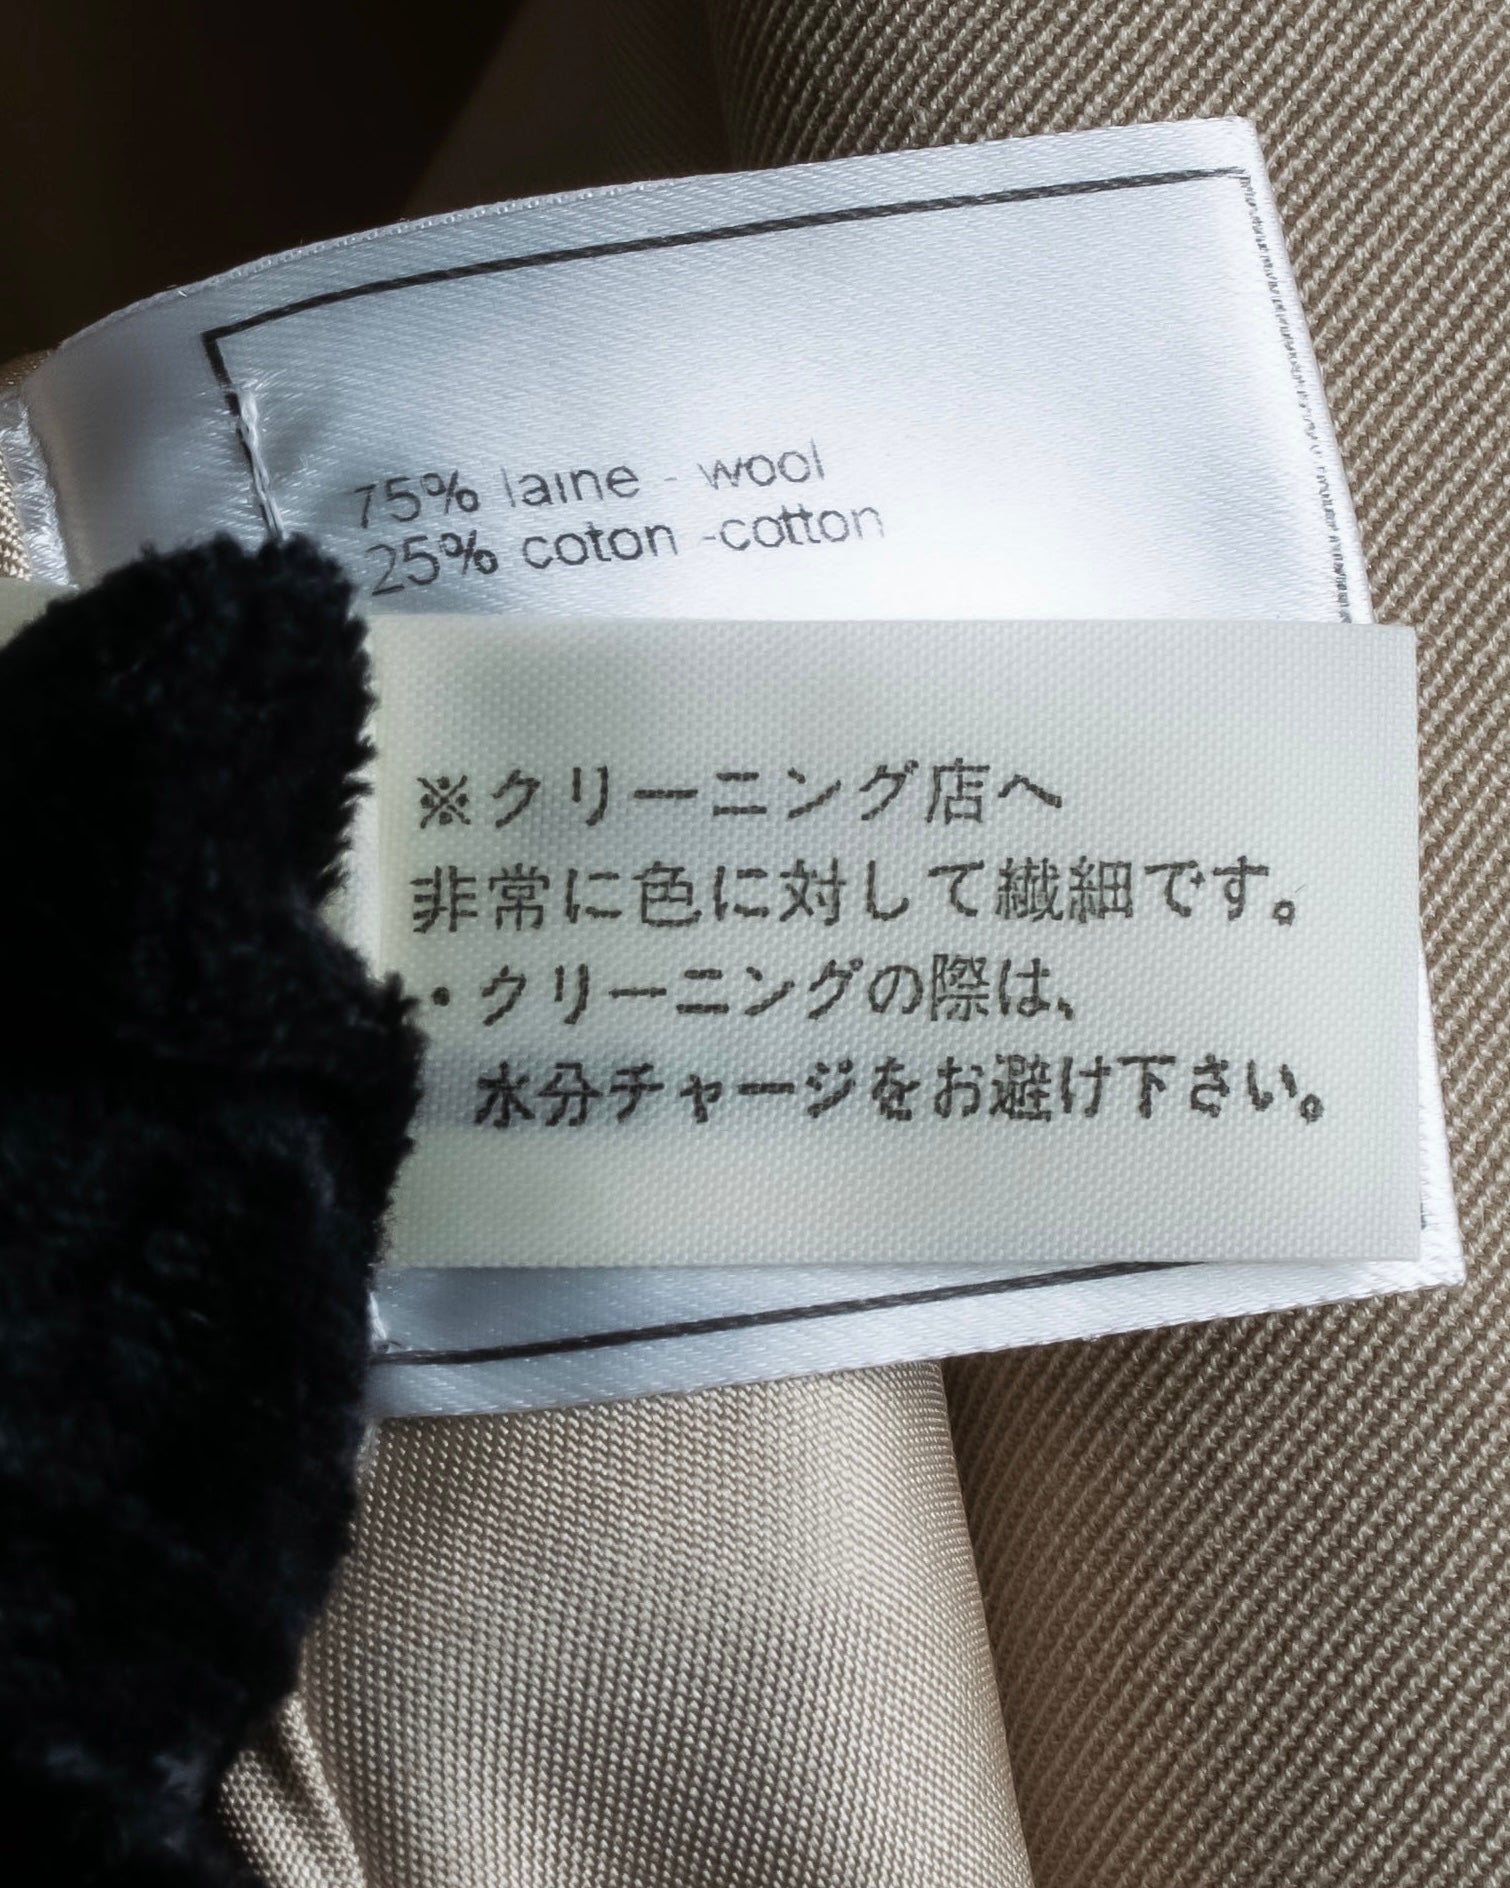 75% laine - wool
25% coton -cotton
※クリーニング店へ
非常に色に対して繊細です。
・クリーニングの際は、
水分チャージをお避け下さい。